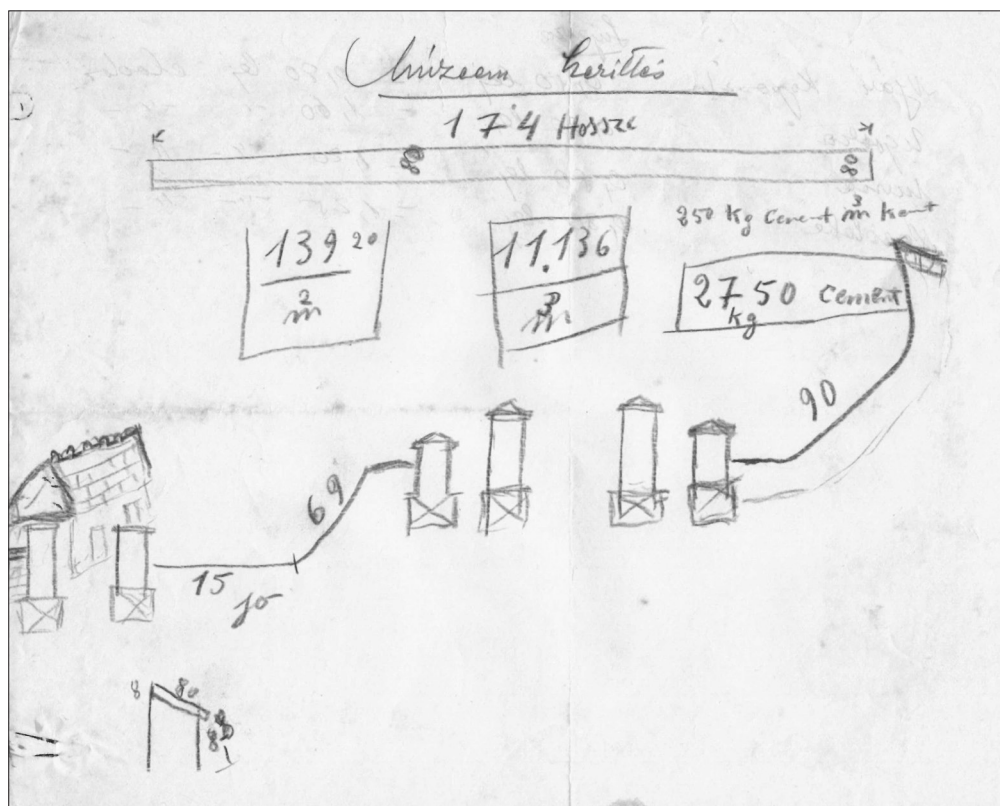 Múzeum kerittés
174 Hossze
80
80
250 kg Cement m³ kent
139 20
m²
11.136
m³
2750 Cement
kg
90
69
15
jó
8
80
8